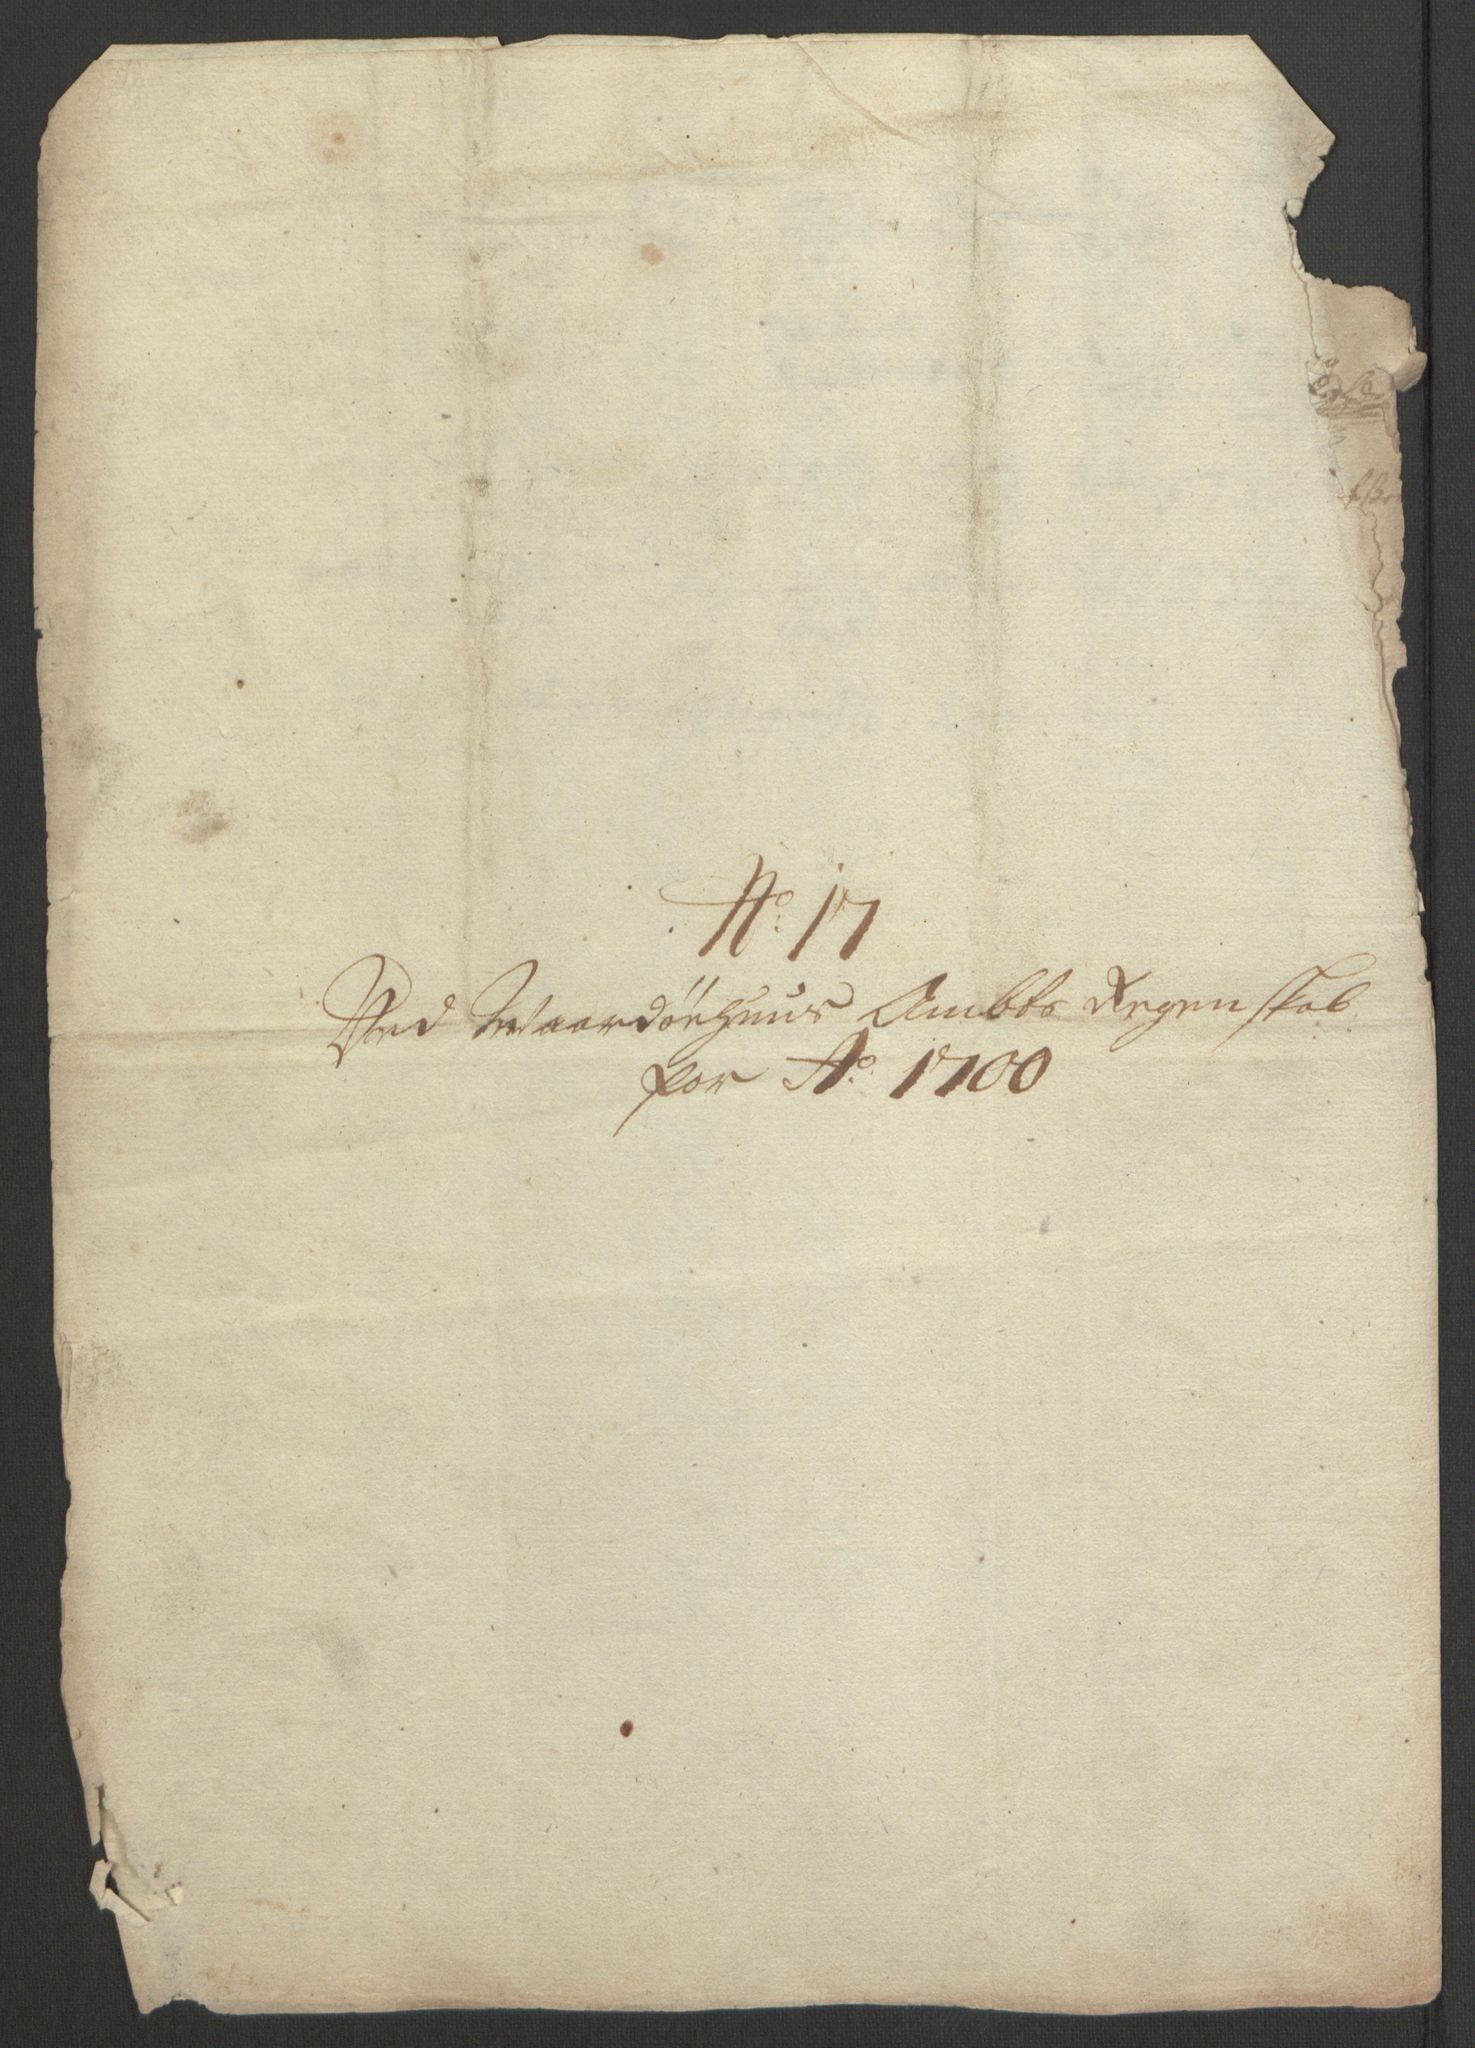 No. 17
Ved Waardöehuus Ambts Regenskab
for Ao. 1700